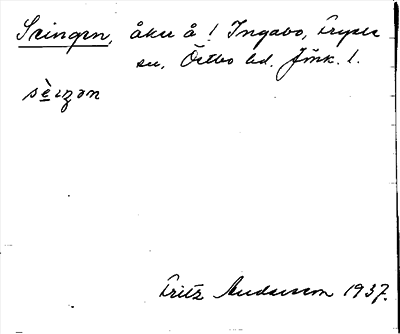 Svingen, åker å! Ingabo, Fryele
sn, Östbo hd. Jönk. l.
Fritz Andersson 1937.